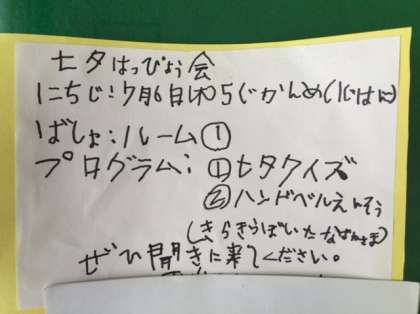 七夕はっぴょう会
にちじ:7月6日(木)5じかんめ(1じはん)
ばしょ:ルーム①
プログラム:①七夕クイズ
②ハンドベルえんそう
(きらきらぼし、たなばたさま)
ぜひ聞きに来てください。